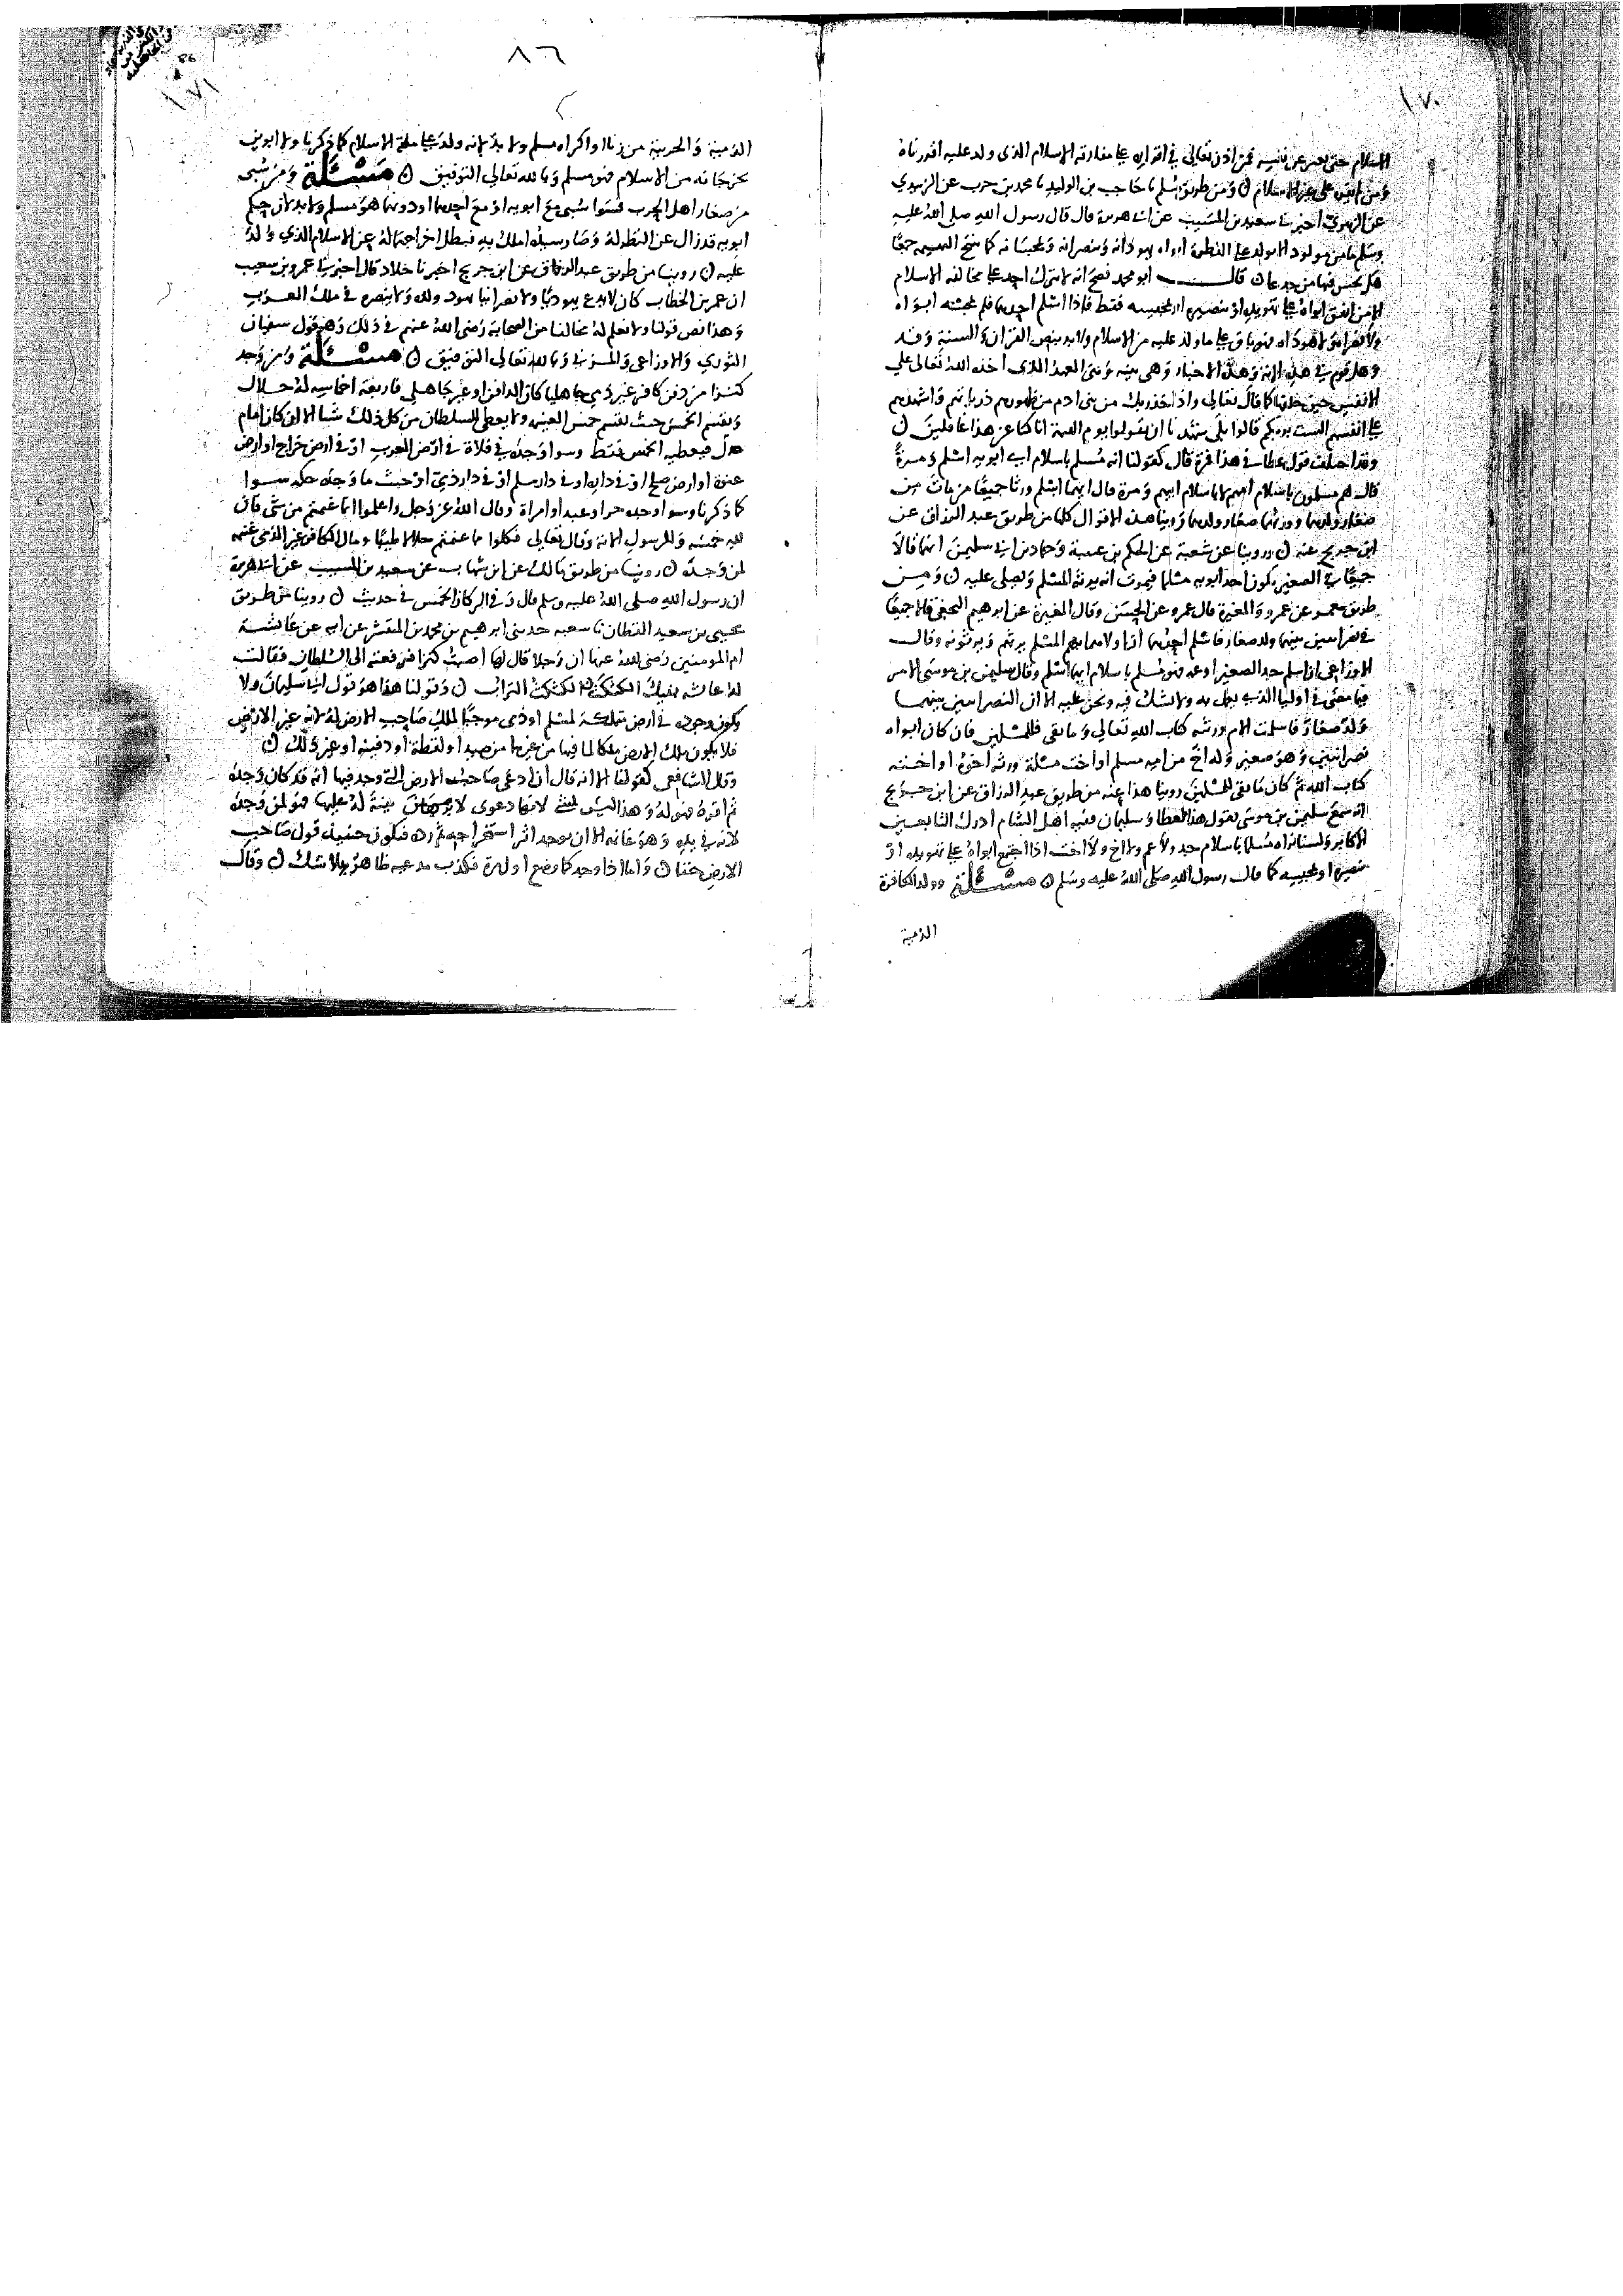 ١٧٠
الاسلام حتى يعبر عن نفسه فمن اذن تعالى في اقراره على مفارقة الاسلام الذى ولد عليه اقررناه
ومن لم يقره على غير الاسلام ومن طريق مسلم نا حاجب بن الوليد نا محمد بن حرب عن الزبيدي
عن الزهري اخبرنا سعيد بن المسيب عن ابى هريرة قال قال رسول الله صلى الله عليه
وسلم ما من مولود الا يولد على الفطرة ابواه يهودانه وينصرانه ويمجسانه كما تنتج البهيمة جمعا
هل تحس فيها من جدعا قال ابو محمد فصح انه لا يترك احد على مخالفة الاسلام
الا من اتفق ابواه على تهويده او تنصيره او تمجيسه فقط فاذا اسلم احدهما فلم يمجسه ابواه
ولا نصراه ولا هوداه فهو باق على ما ولد عليه من الاسلام ولابد بنص القران والسنة وقد
وهل قوم في هذه الاية وهذه الاخبار وهى بينة وهى العهد الذى اخذه الله تعالى على
الانفس حين خلقها كما قال تعالى واذ اخذ ربك من بنى ادم من ظهورهم ذرياتهم واشهدهم
على انفسهم الست بربكم قالوا بلى شهدنا ان يقولوا يوم القيمة انا كنا عن هذا غافلين
وقد اختلف قول عطا في هذا فمرة قال كقولنا انه مسلم باسلام اى ابويه اسلم ومرة
قال هم مسلمون باسلام امهم لا باسلام ابيهم ومرة قال ايهما اسلم ورثا جميعا من مات من
صغار ولدهما وورثهما صغار ولدهما روينا هذه الاقوال كلها من طريق عبد الرزاق عن
ابن جريج عنه وروينا عن شعبة عن الحكم بن عتيبة وحماد بن ابي سليمن انهما قالا
جميعا في الصغير يكون احد ابويه مسلما فيموت انه يرثه المسلم ويصلى عليه ومن
طريق معمر عن عمرو والمغيرة قال عمرو عن الحسن وقال المغيرة عن ابرهيم النخعى قالا جميعا
في نصرانيين بينهما ولد صغار فاسلم احدهما ان اولاهما بهم المسلم يرثهم ويرثونه وقال
الاوزاعى ان اسلم جد الصغير او عمه فهو مسلم باسلام ايهما اسلم وقال سليمن بن موسى الامر
فيما مضى في اولنا الذي يعمل به ولا نشك فيه ونحن عليه الان النصرانيين بينهما
ولد صغار فاسلمت الام ورثته كتاب الله تعالى وما بقى فللمسلمين فان كان ابواه
نصرانيين وهو صغير وله اخ من امه مسلم او اخت مسلمة ورثه اخوه او اخته
كتاب الله ثم كان ما بقى للمسلمين روينا هذا عنه من طريق عبد الرزاق عن ابن جريج
انه سمع سليمن بن موسى يقول هذا لعطا وسليمان فقيه اهل الشام ادرك التابعين
الاكابر ولسنا نراه مسلما باسلام جد ولا عم ولا اخ ولا اخت اذا اجتمع ابواه على تهويده او
تنصيره او تمجيسه كما قال رسول الله صلى الله عليه وسلم مسئلة وولد الكافرة
الذمية
٨٦
86
١٧١
الذمية والحربية من زنا او اكراه مسلم ولابد لانه ولد على ملة الاسلام كما ذكرنا ولا ابوين
يخرجانه من الاسلام فهو مسلم وبالله تعالى التوفيق مسئلة ومن سبى
من صغار اهل الحرب فسوا سبى مع ابويه او مع احدهما او دونهما هو مسلم ولابد لان حكم
ابويه قد زال عن النظر له وصار سيده املك به فبطل اخراجهما له عن الاسلام الذي ولد
عليه روينا من طريق عبد الرزاق عن ابن جريج اخبرنا خلاد قال اخبرني عمرو بن شعيب
ان عمر بن الخطاب كان لا يدع يهوديا ولا نصرانيا يهود ولده ولا ينصره في ملك العرب
وهذا نص قولنا ولا نعلم له مخالفا من الصحابة رضى الله عنهم في ذلك وهو قول سفيان
الثوري والاوزاعى والمزني وبالله تعالى التوفيق مسئلة ومن وجد
كنزا من دفن كافر غير ذمي جاهليا كان الدافن او غير جاهلى فاربعة اخماسه له حلال
ويقسم الخمس حيث يقسم خمس الغنيمة ولا يعطى للسلطان من كل ذلك شيا الا ان كان امام
عدل فيعطيه الخمس فقط وسوا وجده في فلاة في ارض العرب او في ارض خراج او ارض
عنوة او ارض صلح او في داره او في دار مسلم او في دار ذمي او حيث ما وجده حكمه سوا
كما ذكرنا وسوا وجده حر او عبد او امراة وقال الله عز وجل واعلموا انما غنمتم من شى فان
لله خمسه وللرسول الاية وقال تعالى فكلوا مما غنمتم حلالا طيبا ومال الكافر غير الذمى غنيمة
لمن وجده روينا من طريق مالك عن ابن شهاب عن سعيد بن المسيب عن ابى هريرة
ان رسول الله صلى الله عليه وسلم قال وفي الركاز الخمس في حديث روينا من طريق
يحيى بن سعيد القطان نا شعبه حدثنى ابرهيم بن محمد بن المنتشر عن ابيه عن عائشة
ام المومنين رضى الله عنها ان رجلا قال لها اصبت كنزا فرفعته الى السلطان فقالت
له عائشة بفيك الكثكث الكثكث التراب وقولنا هذا هو قول ابى سليمان ولا
يكون وجوده في ارض متملكة لمسلم او ذمى موجبا لملك صاحب الارض له لانه غير الارض
فلا يكون ملك الارض ملكا لما فيها من غيرها من صيد او لقطة او دفينة او غير ذلك
وقال الشافعى كقولنا الا انه قال ان ادعى صاحب الارض التي وجد فيها انه قد كان وجده
ثم اقره فهو له وهذا ليس بشى لانها دعوى لا بينة له عليها فهو لمن وجده
لانه في يده وهو غانمه الا ان يوجد اثر استخراجه ثم رده فيكون حينيذ قول صاحب
الارض حقا واما اذا وجد كما وضع اول مرة فكذب مدعيه ظاهر بلا شك وقال